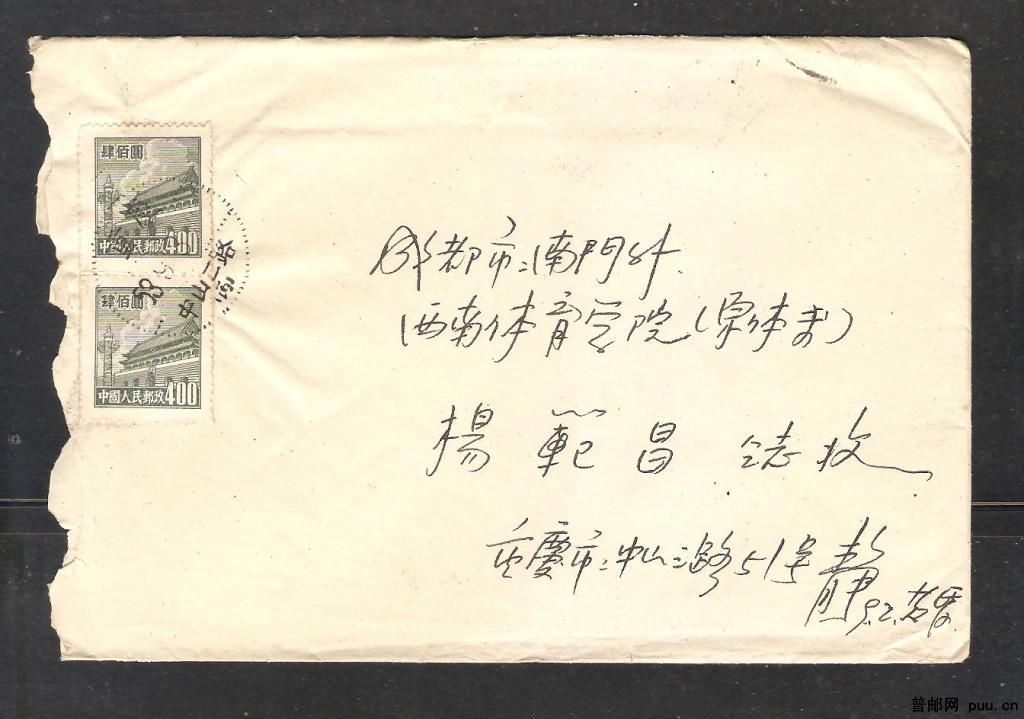 肆佰圓
中國人民郵政400
肆佰圓
中國人民郵政400
中山三路
53
成都市:南門外
西南体育学院(宗体方)
楊範昌 同志收
重慶市:中山三路51号 靜
普邮网 puu.cn